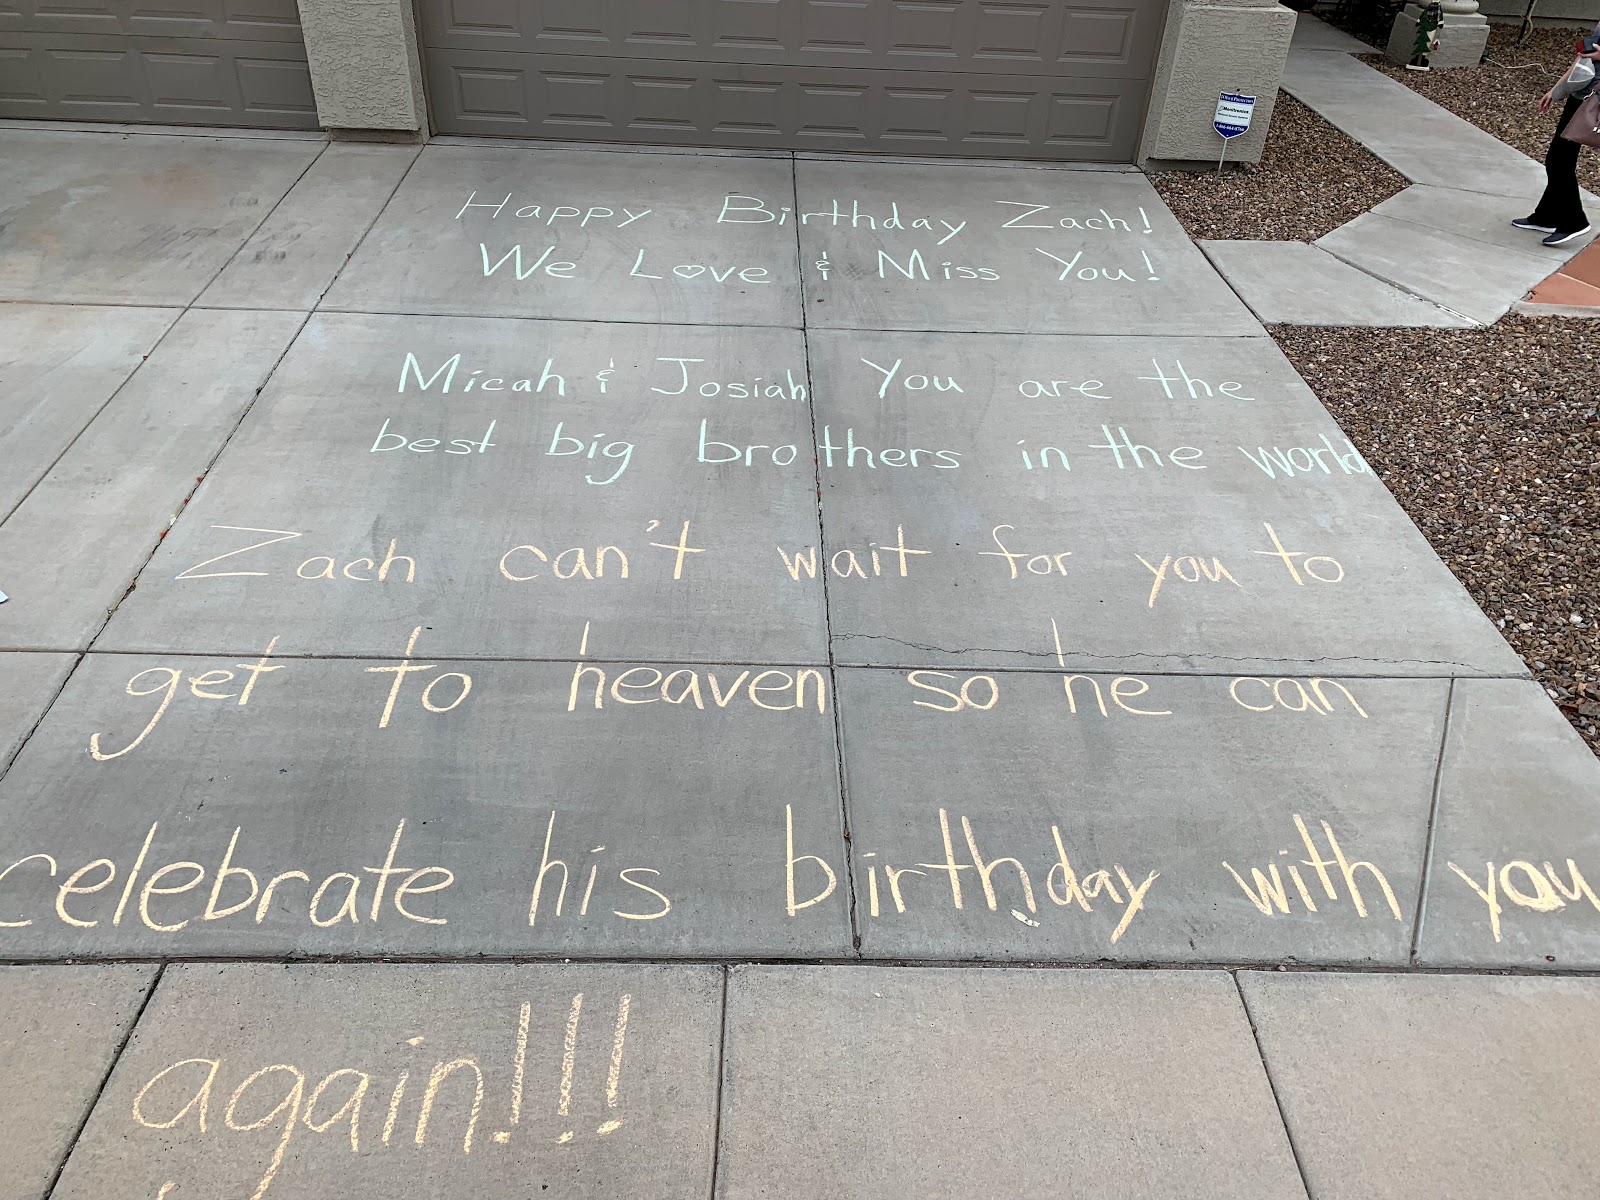 Happy Birthday Zach!
We Love & Miss You!
Micah & Josiah You are the
best big brothers in the world
Zach can't wait for you to
get to heaven so he can
celebrate his birthday with you
again!!!
Monitronics